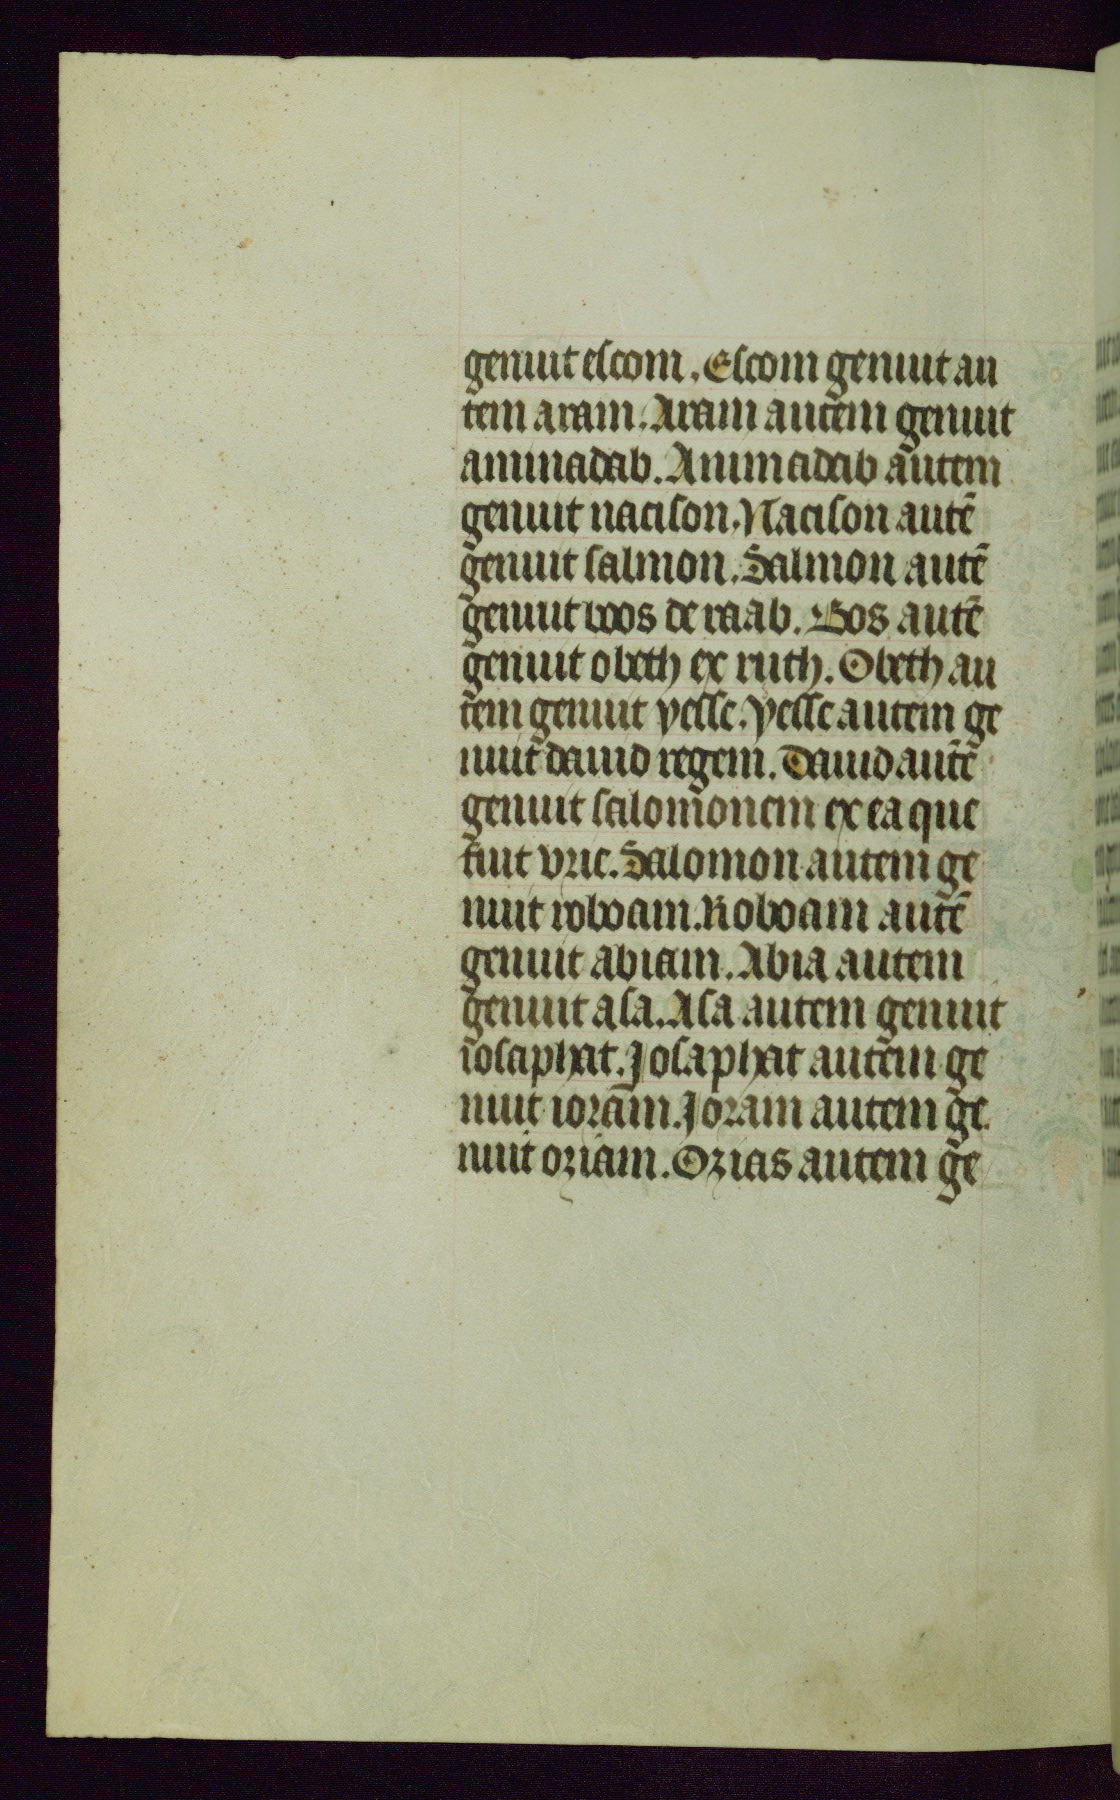 genuit escom. Escom genuit au
tem aram. Aram autem genuit
aminadab. Aminadab autem
genuit naason. Naason autē
genuit salmon. Salmon autē
genuit boos de raab. Bos autē
genuit obeth ex ruth. Obeth au
tem genuit yesse. Yesse autem ge
nuit dauid regem. Dauid autē
genuit salomonem ex ea que
fuit vrie. Salomon autem ge
nuit roboam. Roboam autē
genuit abiam. Abia autem
genuit asa. Asa autem genuit
iosaphat. Josaphat autem ge
nuit ioram. Joram autem ge
nuit oziam. Ozias autem ge